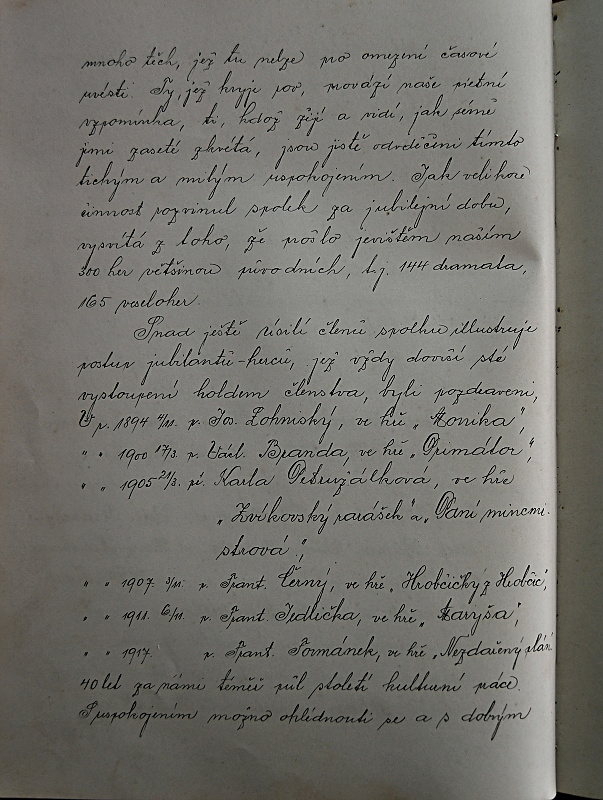 mnoho těch, jež tu nelze pro omezení časové
uvésti. Ty, jež kryje rov, provází naše pietní
vzpomínka, ti, kdož žijí a vidí, jak sémě
jimi zaseté zkvétá, jsou jistě odvděčeni tímto
tichým a milým uspokojením. Jak velikou
činnost rozvinul spolek za jubilejní dobu,
vysvítá z toho, že prošlo jevištěm naším
300 her většinou původních, t.j. 144 dramata,
165 veseloher.
Snad ještě úsilí členů spolku illustruje
postup jubilantů-herců, jež vždy dovrší sté
vystoupení holdem členstva, byli pozdraveni,
V r. 1894 4/11. p. Jos. Lohniský, ve hře „Monika",
" " 1900 17/3. p. Václ. Branda, ve hře „Primátor",
" " 1905 21/3. pí. Karla Petružálková, ve hře
„Zvíkovský rarášek" a „Paní mincmi-
strová",
" " 1907. 3/11. p. Frant. Černý, ve hře „Hrobčický z Hrobčic",
" " 1911. 6/11. p. Frant. Jedlička, ve hře „Maryša",
" " 1917. p. Frant. Formánek, ve hře „Nezdařený plán
40 let za námi téměř půl století kulturní práce.
S uspokojením možno ohlédnouti se a s dobrým